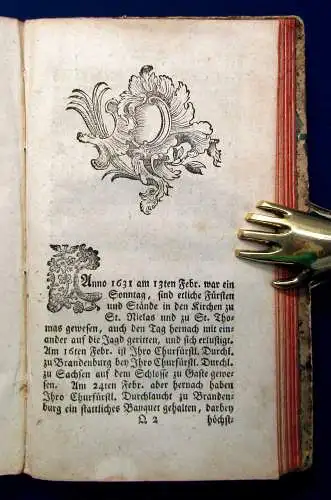 Anno 1631 am 13ten Febr. war ein
Sonntag, sind etliche Fürsten
und Stände in den Kirchen zu
St. Niclas und zu St. Tho-
mas gewesen, auch den Tag hernach mit ein-
ander auf die Jagd geritten, und sich erlustigt.
Am 16ten Febr. ist Ihro Churfürstl. Durchl.
zu Brandenburg bey Ihro Churfürstl. Durchl.
zu Sachsen auf dem Schlosse zu Gaste gewe-
sen. Am 24ten Febr. aber hernach haben
Ihro Churfürstl. Durchlaucht zu Branden-
burg ein stattliches Banquet gehalten, darbey
Q 2 höchst-